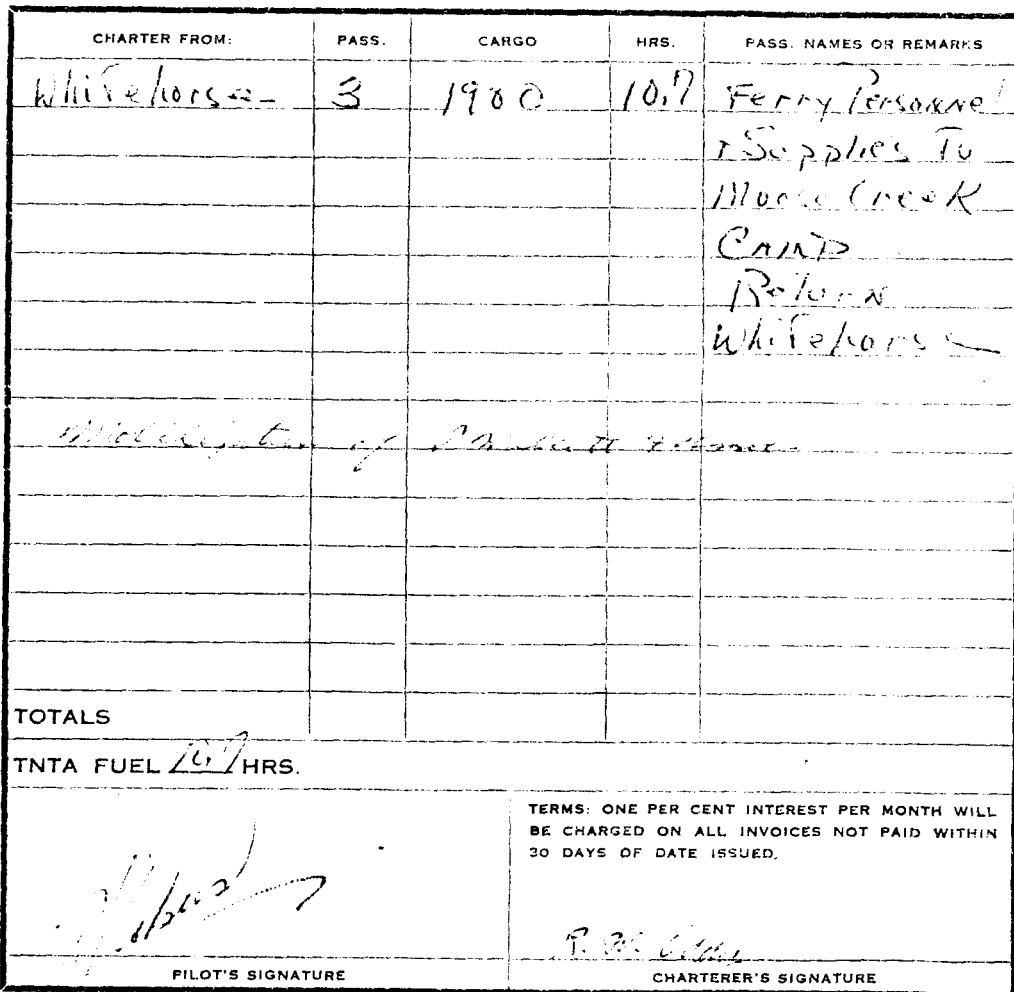 CHARTER FROM: PASS. CARGO HRS. PASS. NAMES OR REMARKS
Whitehorse 3 1900 10.7 Ferry Personnel
+ Supplies To
Moose Creek
CAMP
Return
Whitehorse
of
TOTALS
TNTA FUEL 10.7 HRS.
TERMS: ONE PER CENT INTEREST PER MONTH WILL
BE CHARGED ON ALL INVOICES NOT PAID WITHIN
30 DAYS OF DATE ISSUED.
PILOT'S SIGNATURE CHARTERER'S SIGNATURE